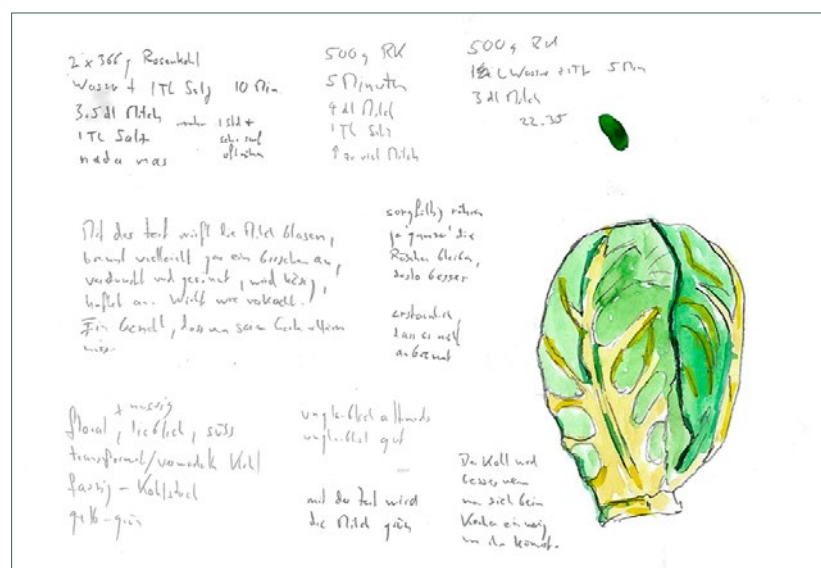 2 x 366 g Rosenkohl
Wasser + 1 TL Salz 10 Min.
3.5 dl Milch
1 TL Salz
nada mas
1 Std +
500 g RK
5 Minuten
4 dl Milch
1 TL Salz
↑ zu viel Milch
500 g RK
Wasser + 1 TL 5 Min
3 dl Milch
22.35
Mit der Zeit wirft die Milch Blasen,
brennt vielleicht gar ein bisschen an,
verdunstet und gerinnt, wird käsig,
haftet an. Wirkt wie
Ein Gericht, dass um seine
muss.
sorgfältig rühren
je 'ganzer' die
Röschen bleiben,
desto besser
erstaunlich,
dass es nicht
anbrennt
+ nussig
floral, lieblich, süss
transformed/ Kohl
fasrig – Kohlstock
gelb-grün
unglaublich
unglaublich gut
mit der Zeit wird
die Milch grün
Der Kohl wird
besser wenn
man sich beim
Kochen ein wenig
um ihn kümmert.